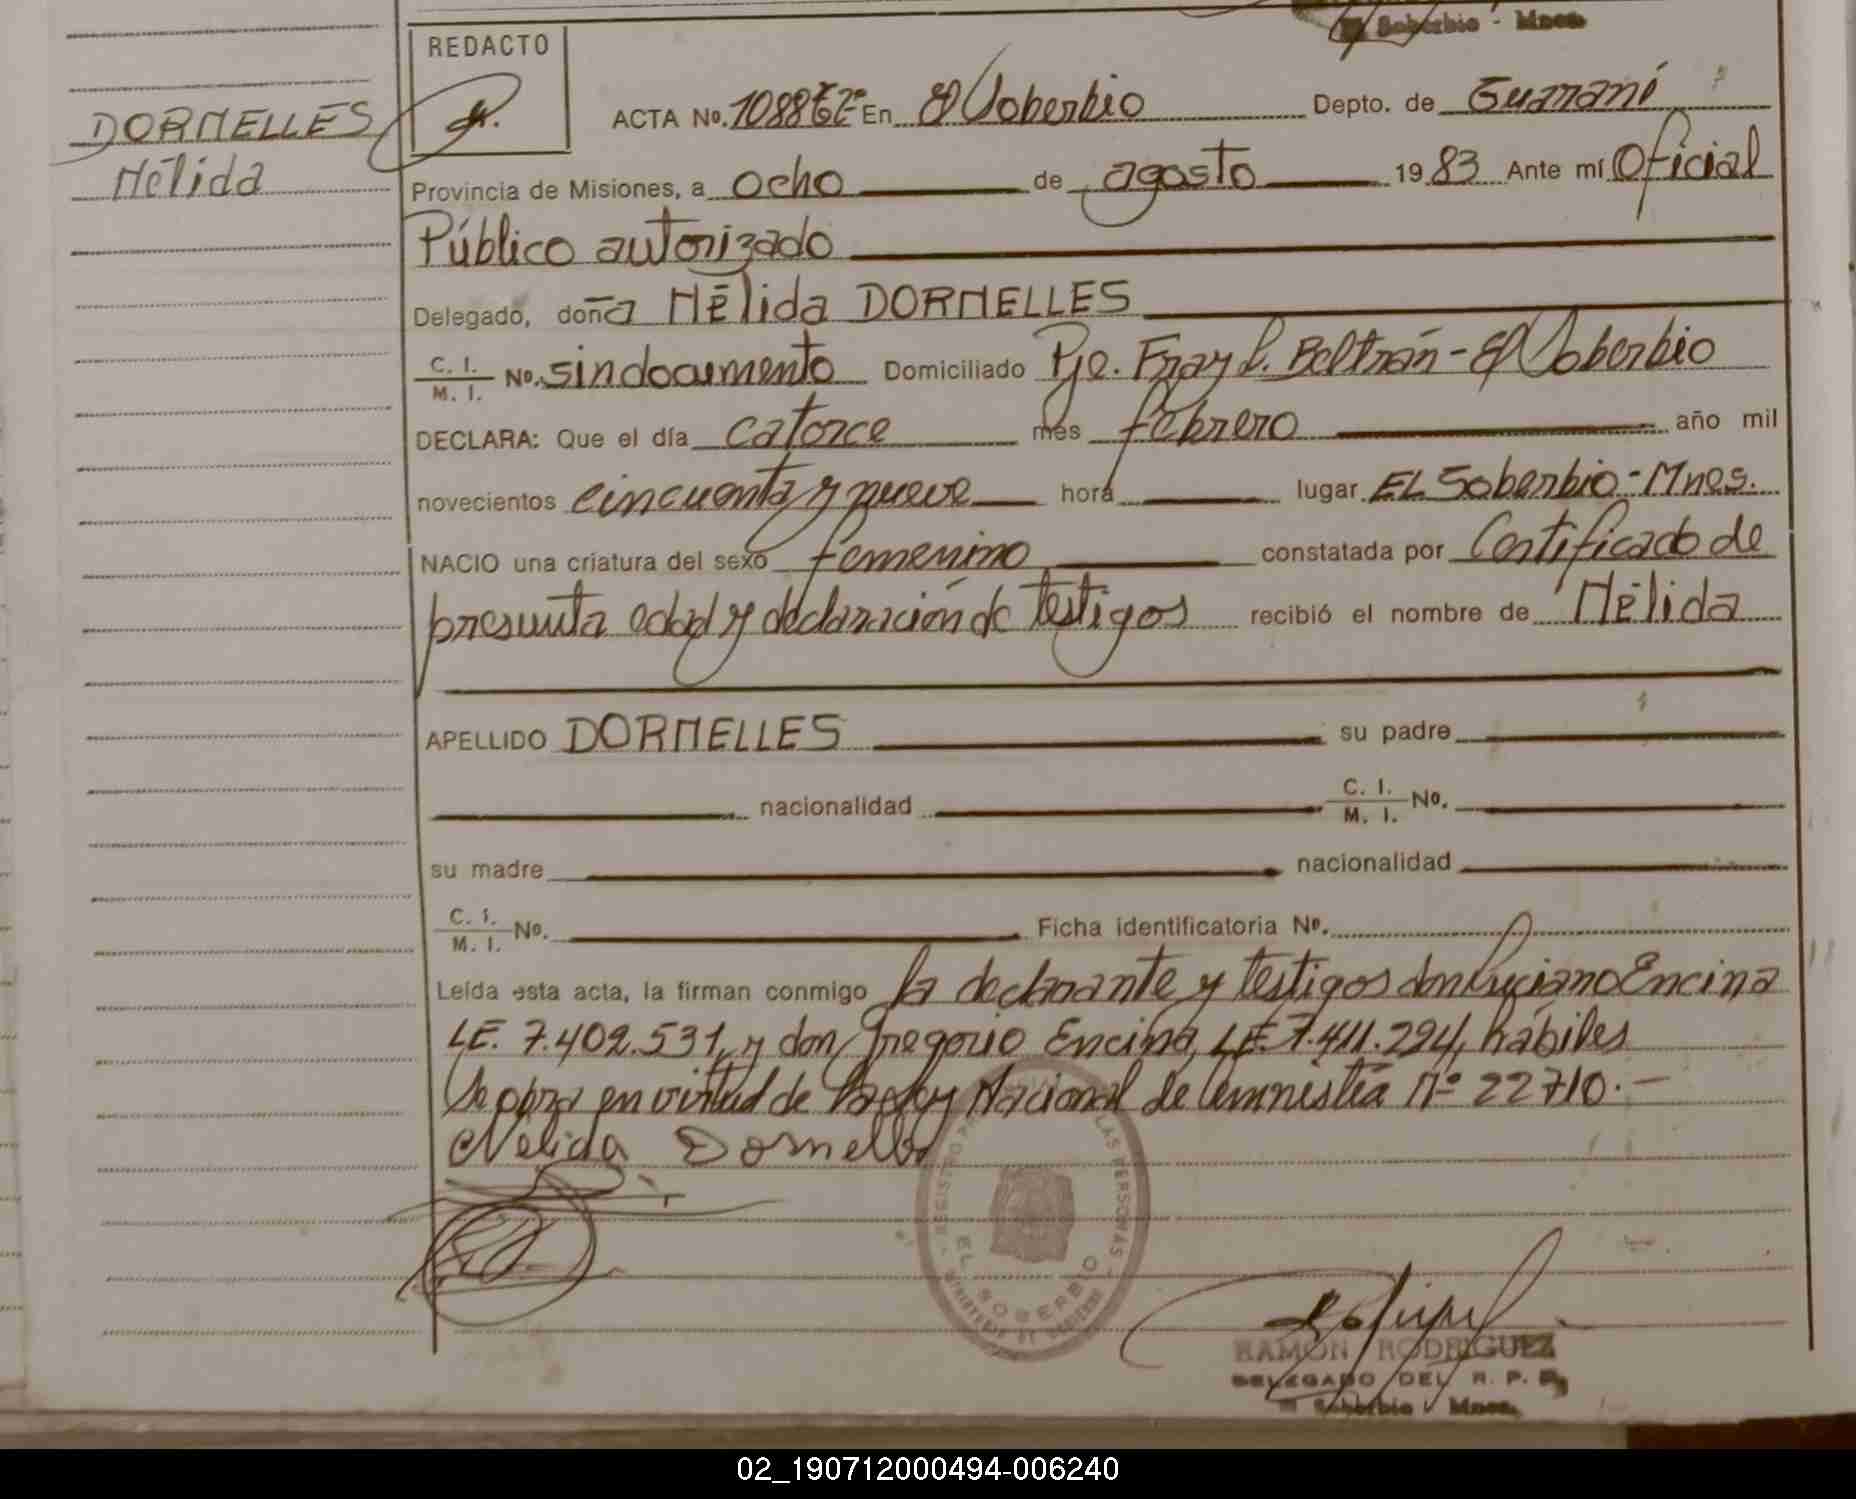 Soberbio - Mnes.
REDACTO
DORNELLES
Nélida
ACTA No. En El Soberbio Depto. de Guaraní
Provincia de Misiones, a ocho de agosto 1983 Ante mí Oficial
Público autorizado
Delegado, doña Nélida DORNELLES
C. I. / M. I. No. sindocumento Domiciliado Pje. Fray L. Beltrán - El Soberbio
DECLARA: Que el día catorce mes febrero año mil
novecientos cincuenta y nueve hora lugar EL Soberbio - Mnes.
NACIO una criatura del sexo femenino constatada por Certificado de
presunta edad y declaración de testigos recibió el nombre de Nélida
APELLIDO DORNELLES su padre
nacionalidad C. I. / M. I. No.
su madre nacionalidad
C. I. / M. I. No. Ficha identificatoria No.
Leída esta acta, la firman conmigo la declarante y testigos don Luciano Encina
LE. 7.402.531, y don Gregorio Encina, LE. 7.411.224, hábiles
Se obra en virtud de la Ley Nacional de Amnistía Nº 22710.-
Nélida Dornelles
REGISTRO LAS PERSONAS
EL SOBERBIO
RAMON RODRIGUEZ
DELEGADO DEL R. P. P.
Soberbio Mnes.
02_190712000494-006240